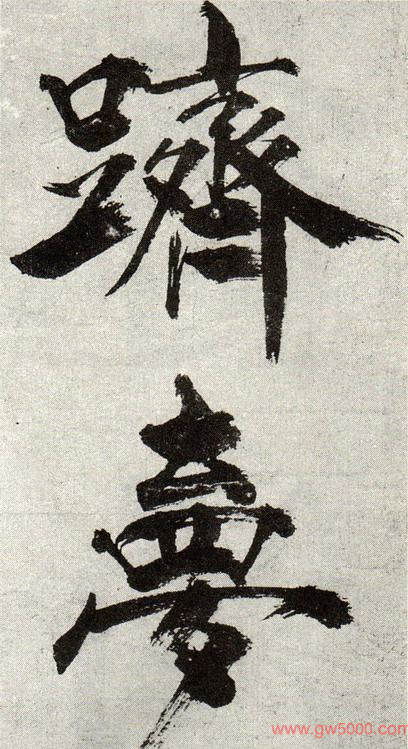 躋夢
www.gw5000.com